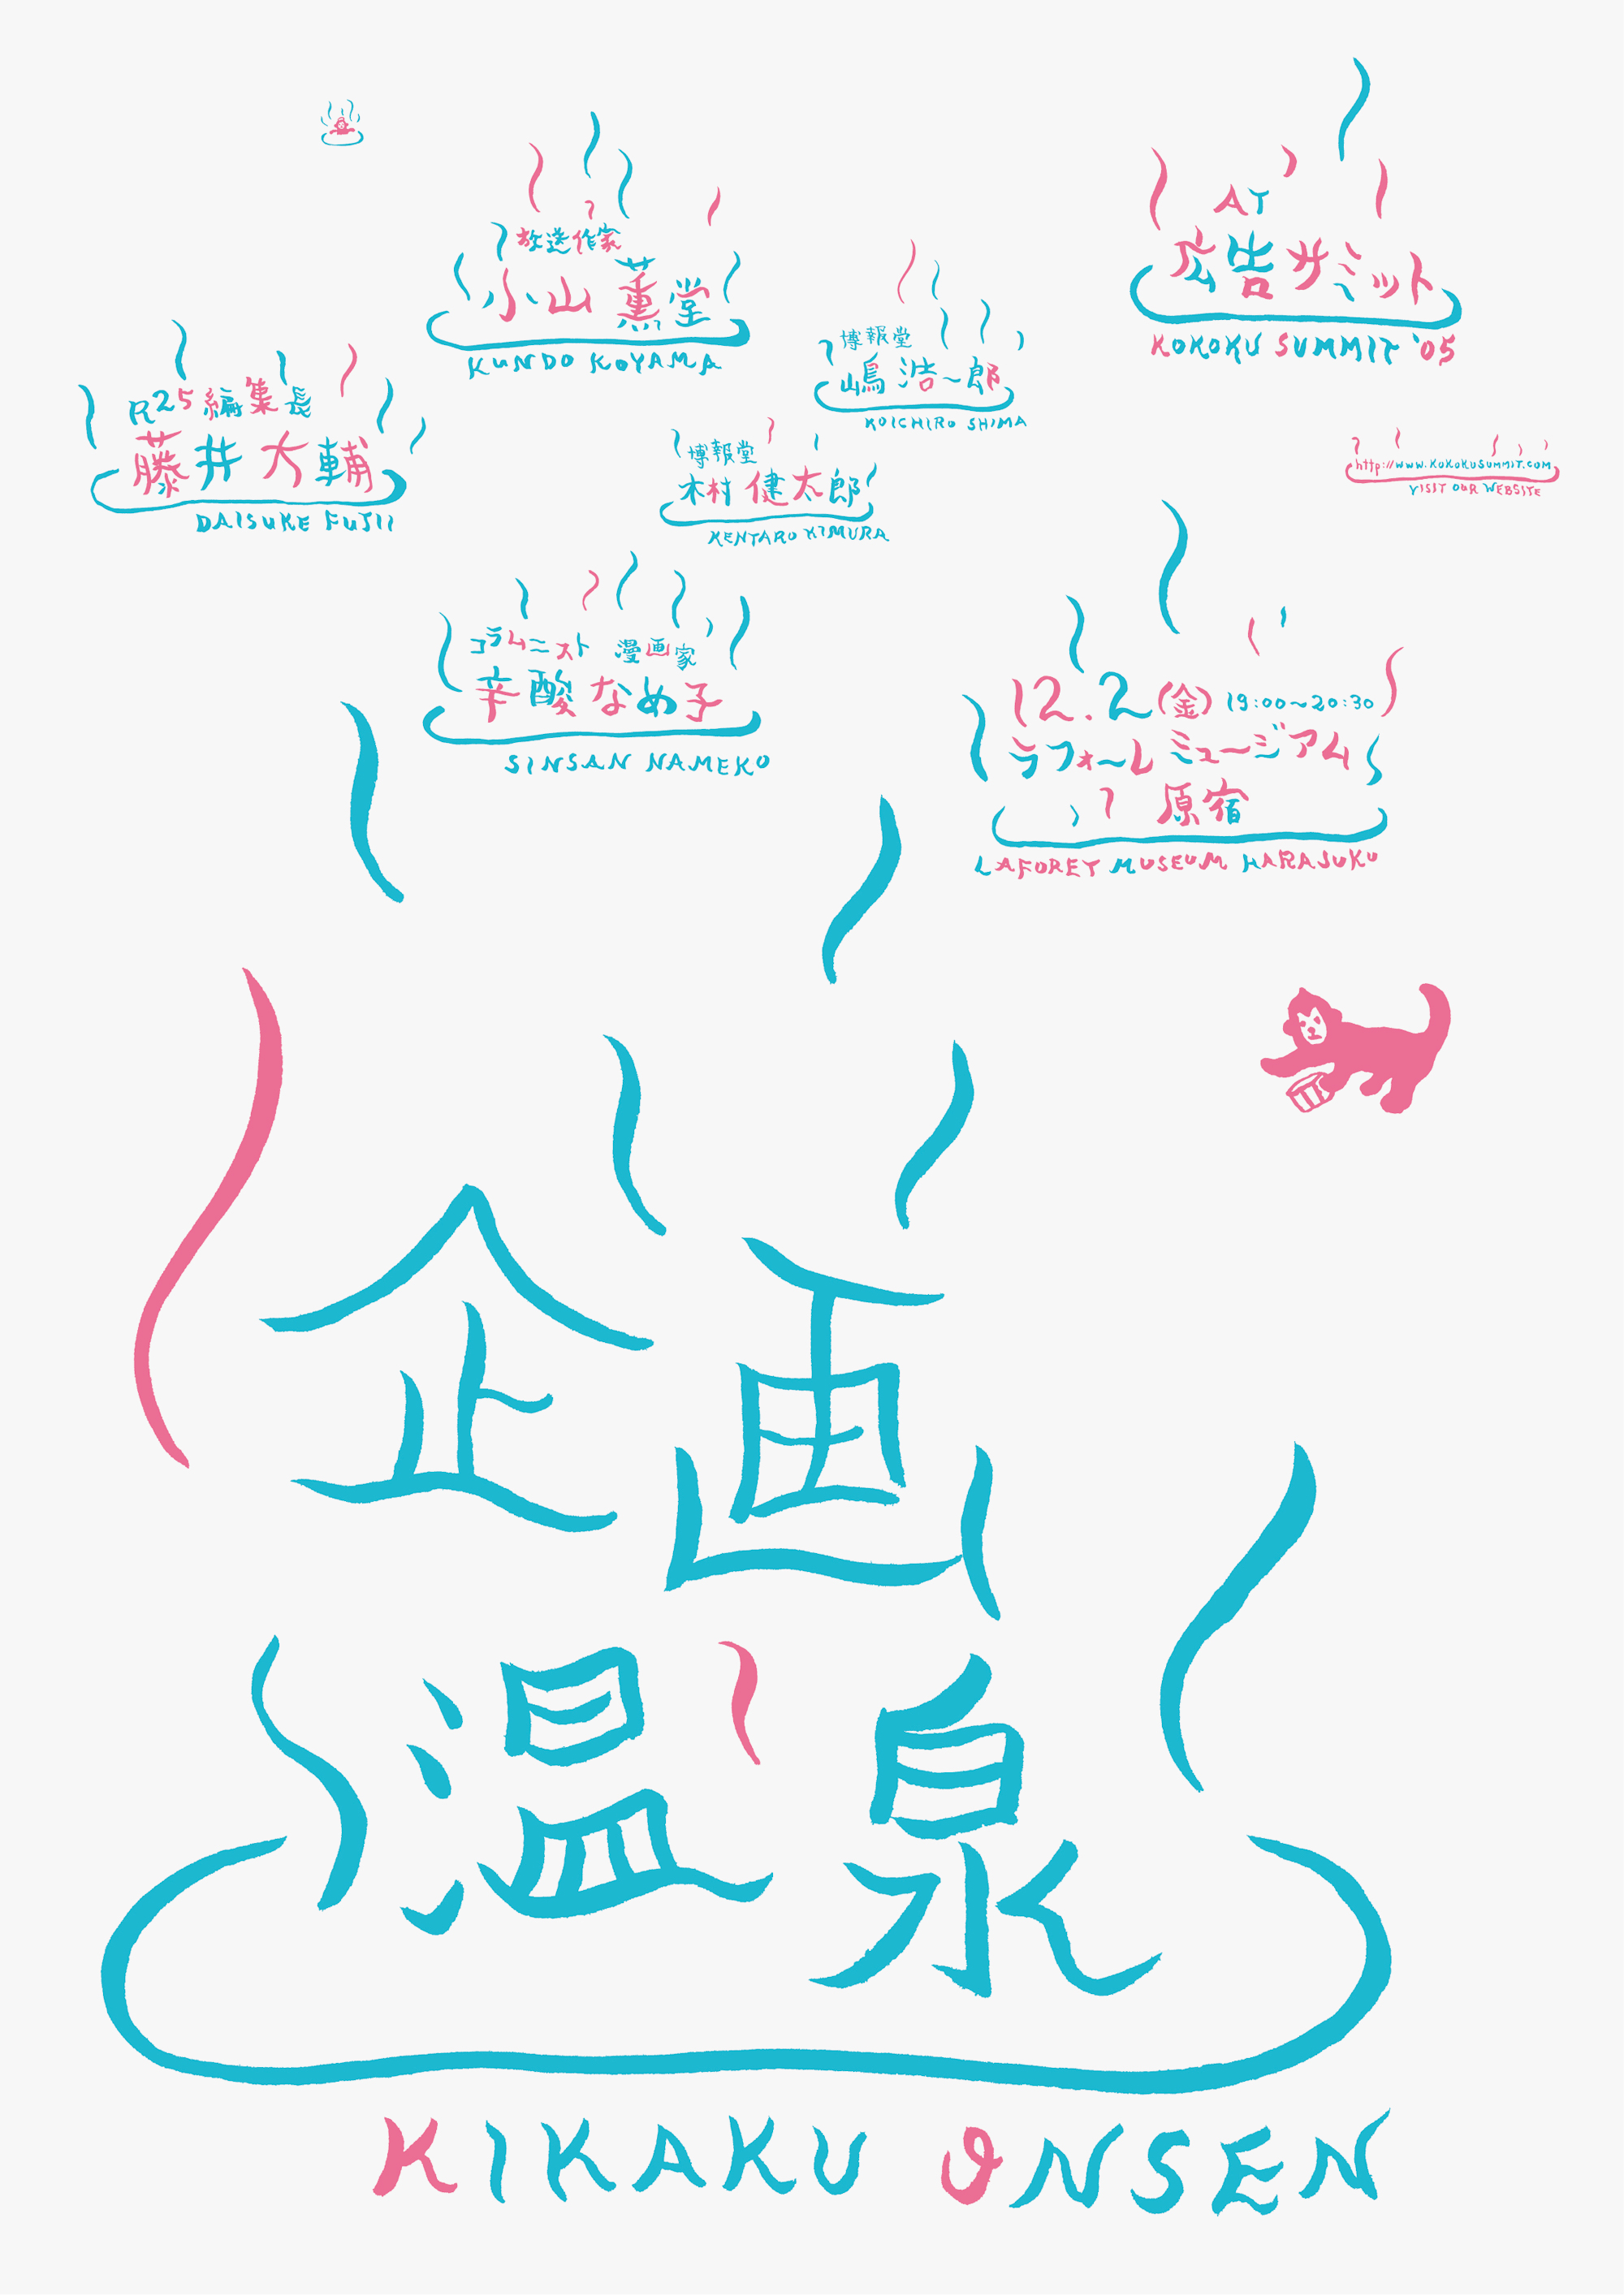 放送作家
小山薫堂
KUNDO KOYAMA
R25編集長
藤井大輔
DAISUKE FUJII
博報堂
嶋浩一郎
KOICHIRO SHIMA
博報堂
木村健太郎
KENTARO KIMURA
コラムニスト 漫画家
辛酸なめ子
SINSAN NAMEKO
AT
広告サミット
KOKOKU SUMMIT '05
http://www.KOKOKUSUMMIT.COM
VISIT OUR WEBSITE
12.2(金) 19:00〜20:30
ラフォーレ ミュージアム
原宿
LAFORET MUSEUM HARAJUKU
企画
温泉
KIKAKU ONSEN